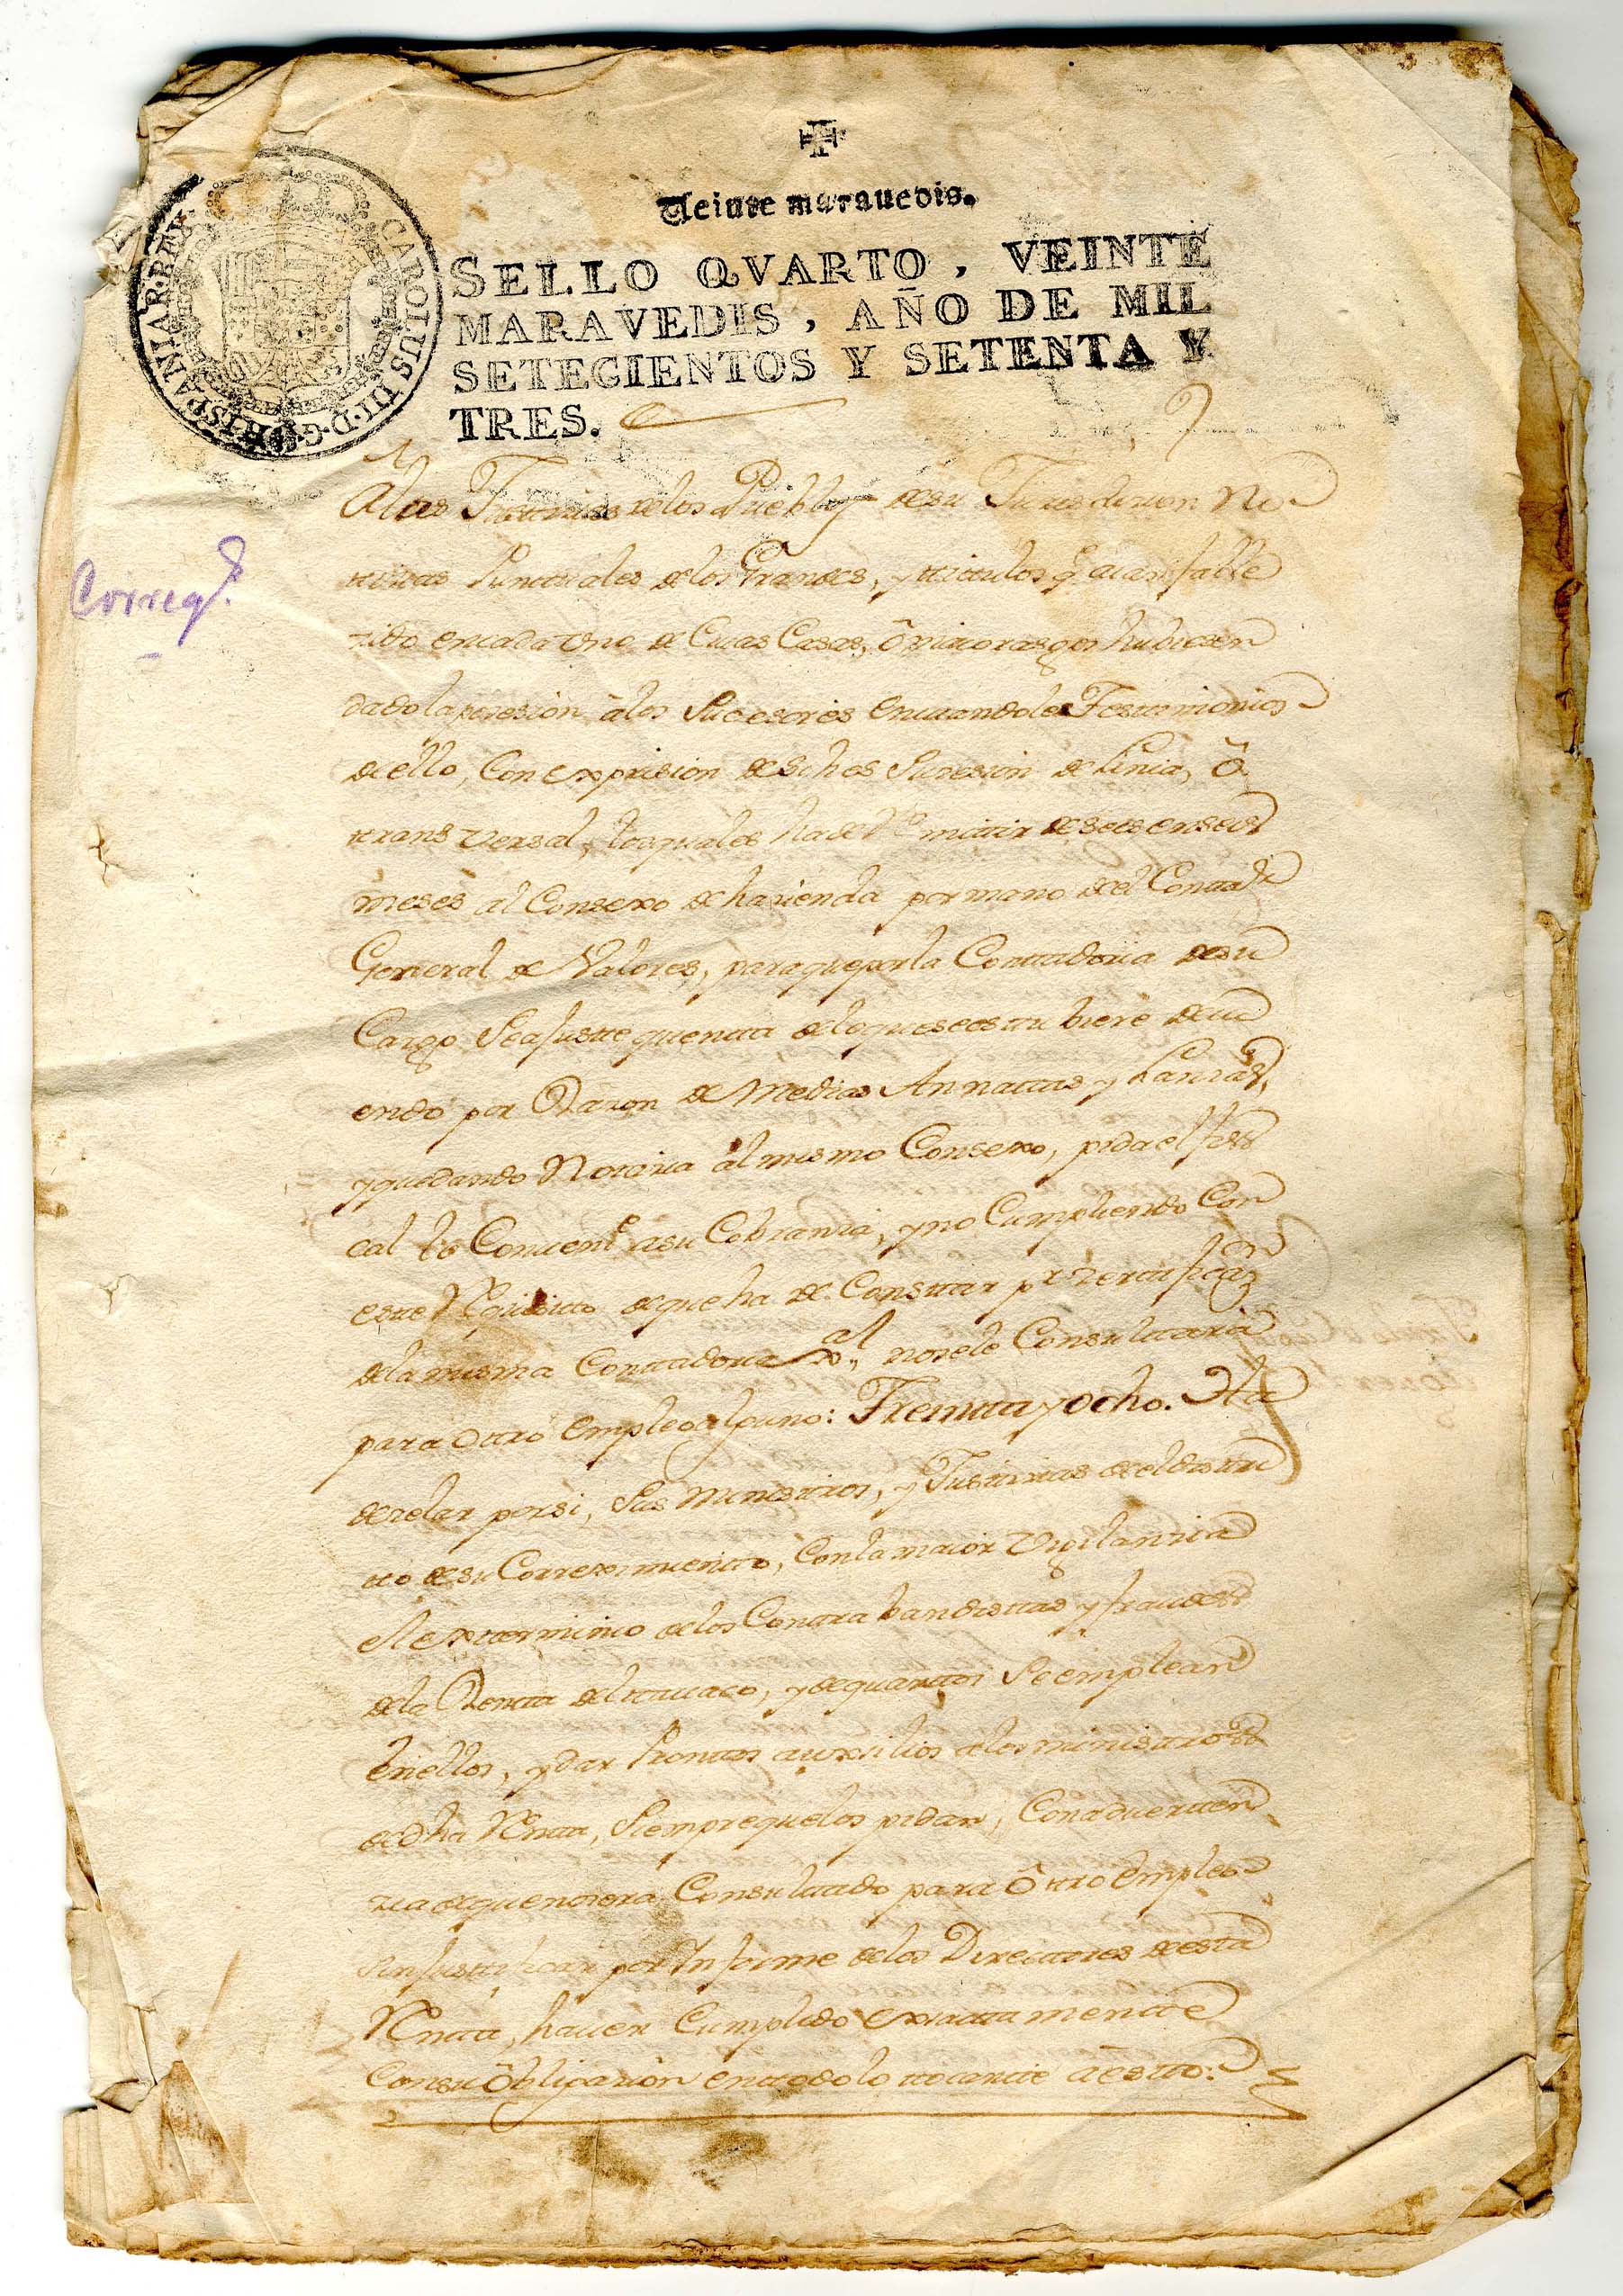 Veinte marauedis.
SELLO QVARTO, VEINTE
MARAVEDIS, AÑO DE MIL
SETECIENTOS Y SETENTA Y
TRES.
CAROLUS III·D·G·HISPANIAR·REX
Correg.r
â las Justicias de los Pueblos de su Jurisdicion No
tticias Puntuales de los Grandes, y tittulos q.e aian falle
zido en cada Uno de Cuias Casas, ô maiorasgos hubiesen
dado la posesion â los Sucesores enviandoles Testimonios
de ello, Con expresion de dichos Sucesion de Linia, ô
transversal, los quales ha de Remitir de seis en seis
meses al Consexo de hazienda por mano de el Contad.r
General de Valores, para que por la Conttaduria de su
Cargo Se ajuste quentta de lo que se esttubiere devi
endo por Razon de Medias Annattas y Lanzas,
y quedando Noticia al mismo Consexo, pida el fis
cal lo Conven.te a su Cobranza, y no Cumpliendo Con
este Requisitto de que ha de Consttar p.r Zerttificaz.n
de la misma Conttaduria Gral, no se le Consulttara
para Ottro Empleo alguno: Treintta y ocho. Ha
de zelar por si, Sus Ministros, y Justticias de el distri
tto de su Correximientto, Con la maior Vigilanzia
el extterminio de los Contrabandisttas y fraudes
de la Rentta del ttavaco, y de quanttos Se emplean
en ellos, y dar Promttos auxsilios a los ministros
de dha Rentta, Siempre que los pidan, Con adverten
zia de que no sera Consulttado para ôttro Empleo
sin justtificar por Informe de los Directtores de esta
Rentta, haver Cumplido exsacttamentte
Con su ôbligazion en ttodo lo ttocantte â estto: